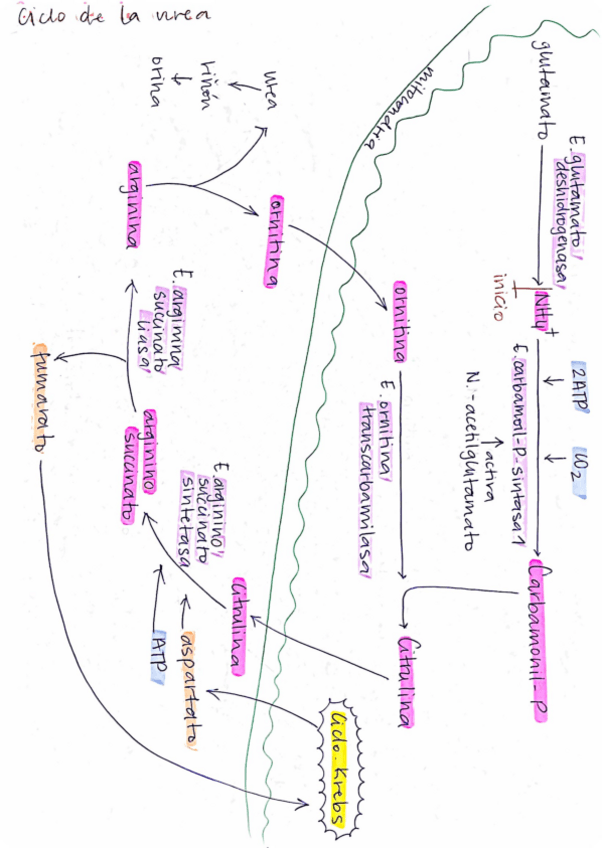 Ciclo de la urea
glutamato
E. glutamato
deshidrogenasa
NH4+
inicio
2ATP
CO2
E. carbamoil-P-sintasa 1
activa
N.-acetilglutamato
Carbamonil-P
mitocondria
ornitina
E. ornitina
transcarbamilasa
Citrulina
urea
riñón
orina
ornitina
arginina
E. arginina
succinato
liasa
fumarato
arginino
succinato
E. arginino
succinato
sintetasa
citrulina
aspartato
ATP
Ciclo. Krebs